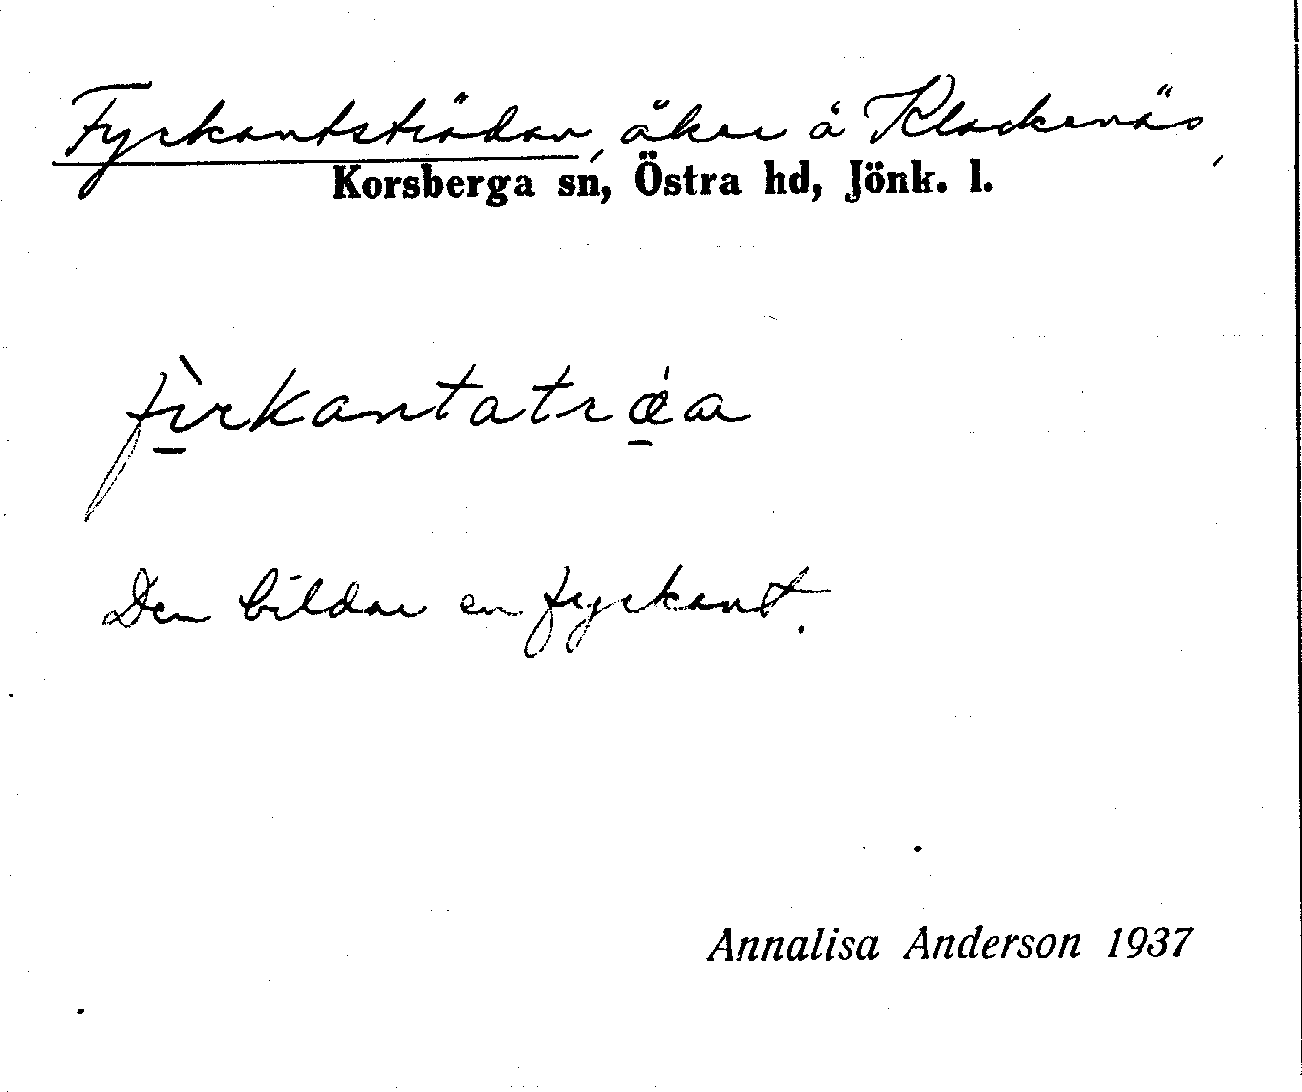 Fyrkantsträdan, åker å Klackenäs,
Korsberga sn, Östra hd, Jönk. l.
fìrkantatrǽa
Den bildar en fyrkant.
Annalisa Anderson 1937